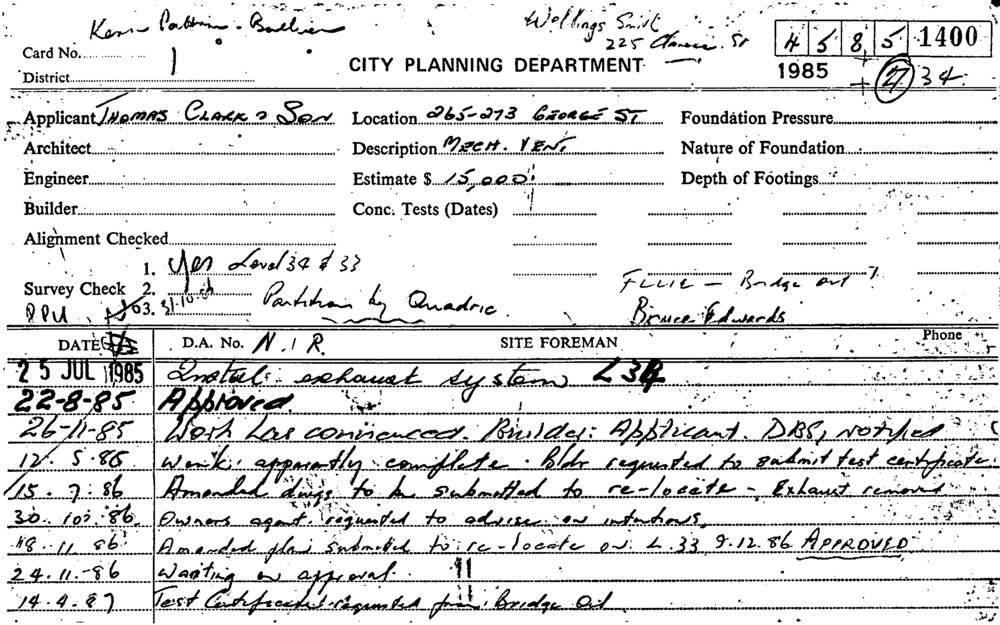 Wellings Smith
225 Clarence St
4 5 8 5 1400
Card No. 1
CITY PLANNING DEPARTMENT
1985
27 34
District
Applicant THOMAS CLARK & SON Location 265-273 GEORGE ST Foundation Pressure
Architect Description MECH. VENT. Nature of Foundation
Engineer Estimate $ 15,000 Depth of Footings
Builder Conc. Tests (Dates)
Alignment Checked
1. Yes Level 34 & 33
Survey Check 2. Partition by Quadric
3. 31.10.86
Bridge Oil
Bruce Edwards
DATE D.A. No. N.I.R. SITE FOREMAN Phone
25 JUL 1985 Install exhaust system L34
22-8-85 Approved
26-11-85 Work has commenced. Builder: Applicant. DBS, notified
12.5.86 Work apparently complete. Bldr requested to submit test certificate.
15.7.86 Amended dwgs to be submitted to re-locate - Exhaust removed
30.10.86 Owners agent requested to advise on intentions.
18.11.86 Amended plan submitted to re-locate on L.33 9.12.86 APPROVED
24.11.86 Waiting on approval.
14.4.87 Test Certificate requested from Bridge Oil